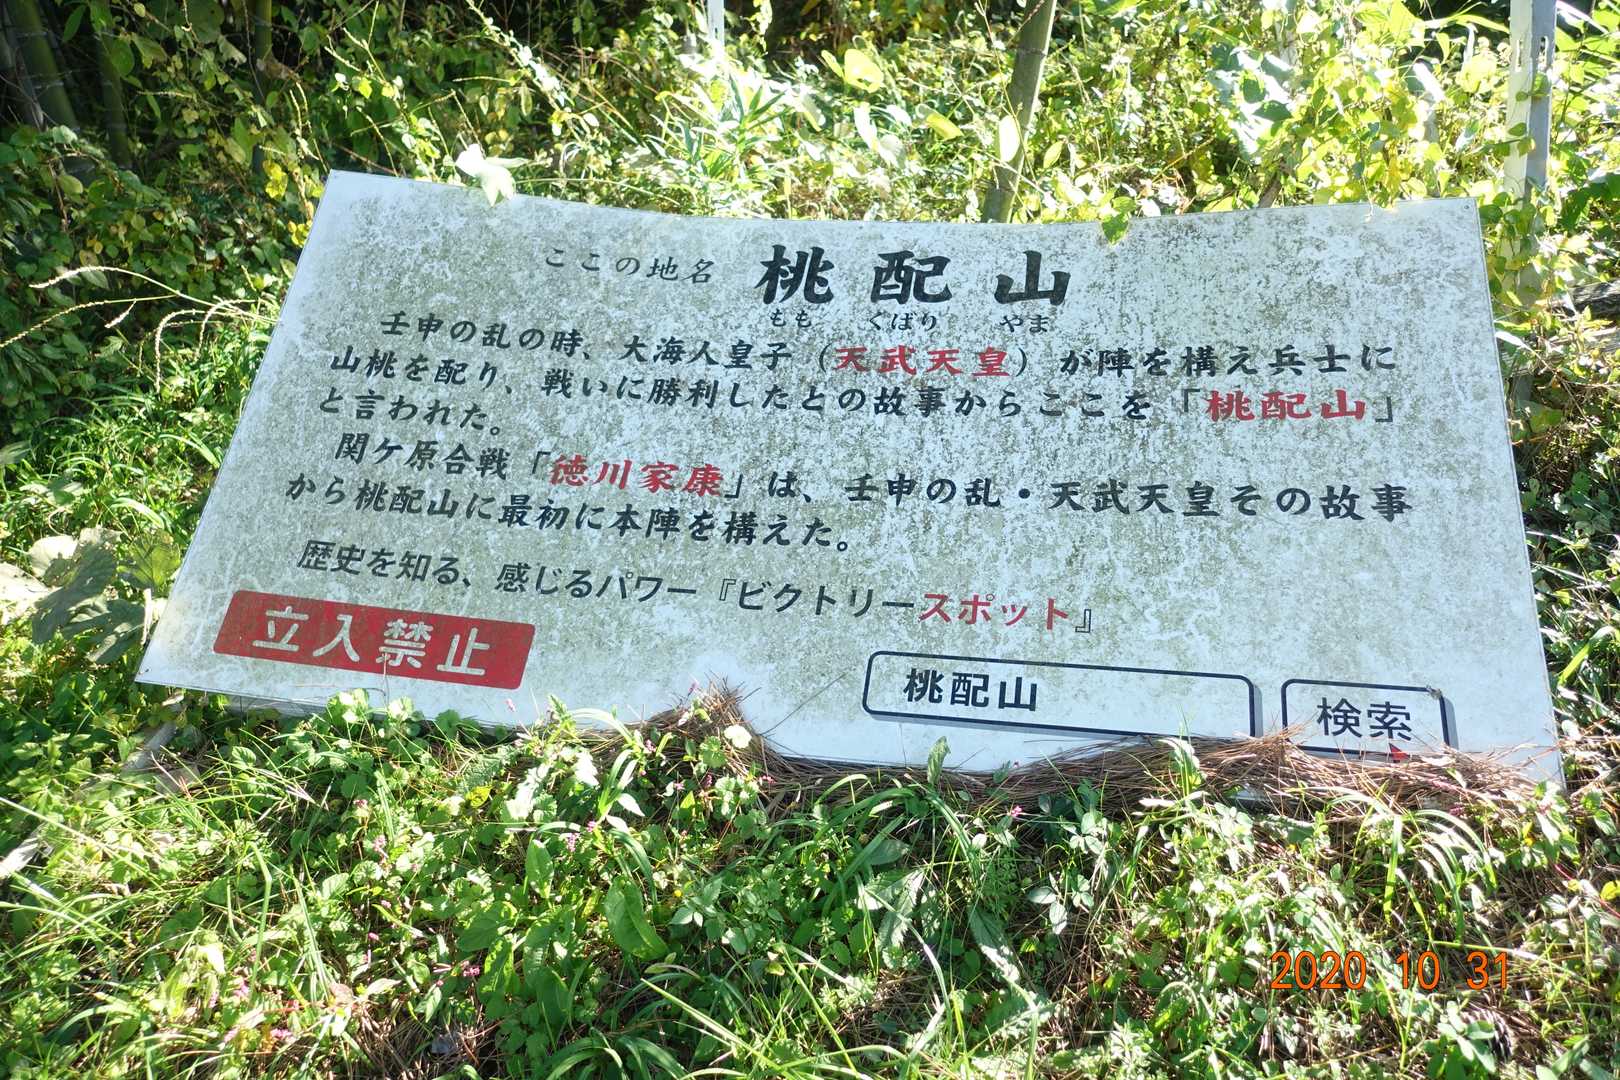 ここの地名 桃配山
もも くばり やま
壬申の乱の時、大海人皇子(天武天皇)が陣を構え兵士に
山桃を配り、戦いに勝利したとの故事からここを「桃配山」
と言われた。
関ケ原合戦「徳川家康」は、壬申の乱・天武天皇その故事
から桃配山に最初に本陣を構えた。
歴史を知る、感じるパワー『ビクトリースポット』
立入禁止
桃配山 検索
2020 10 31